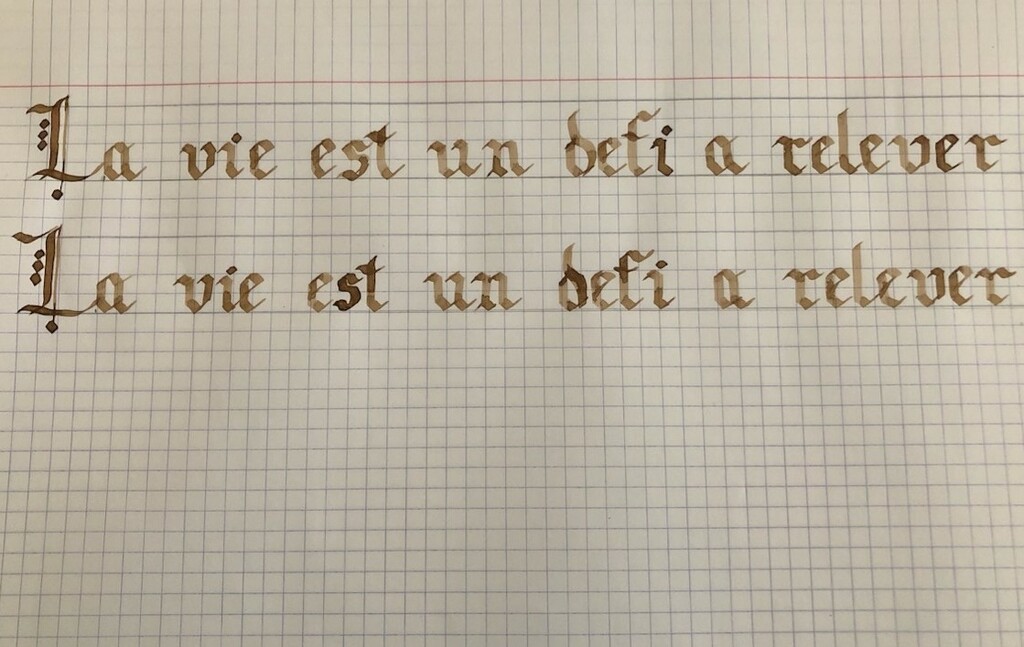 La vie est un defi a relever
La vie est un defi a relever